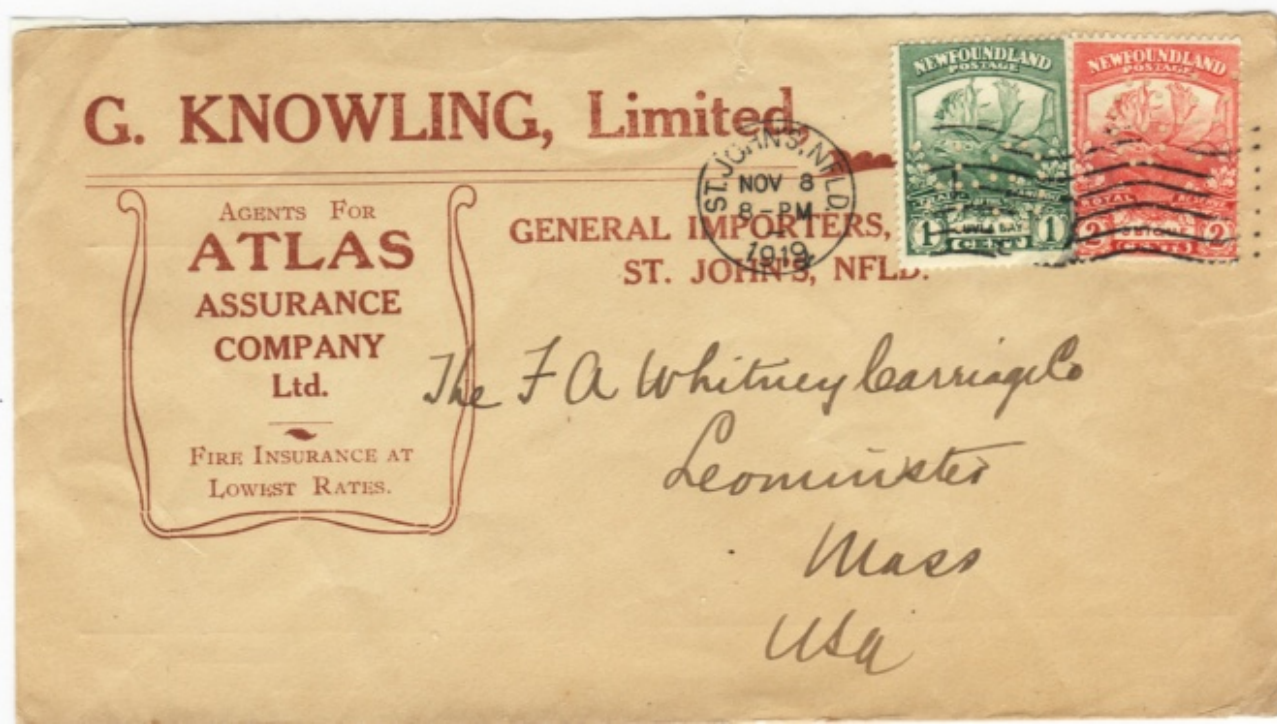 G. KNOWLING, Limited,
AGENTS FOR
ATLAS
ASSURANCE
COMPANY
Ltd.
FIRE INSURANCE AT
LOWEST RATES.
GENERAL IMPORTERS,
ST. JOHN'S, NFLD.
ST. JOHN'S, NFLD.
NOV 8
8-PM
1919
NEWFOUNDLAND
POSTAGE
1 1
CENT
NEWFOUNDLAND
POSTAGE
2 2
CENTS
The F A Whitney Carriage Co
Leominster
Mass
USA